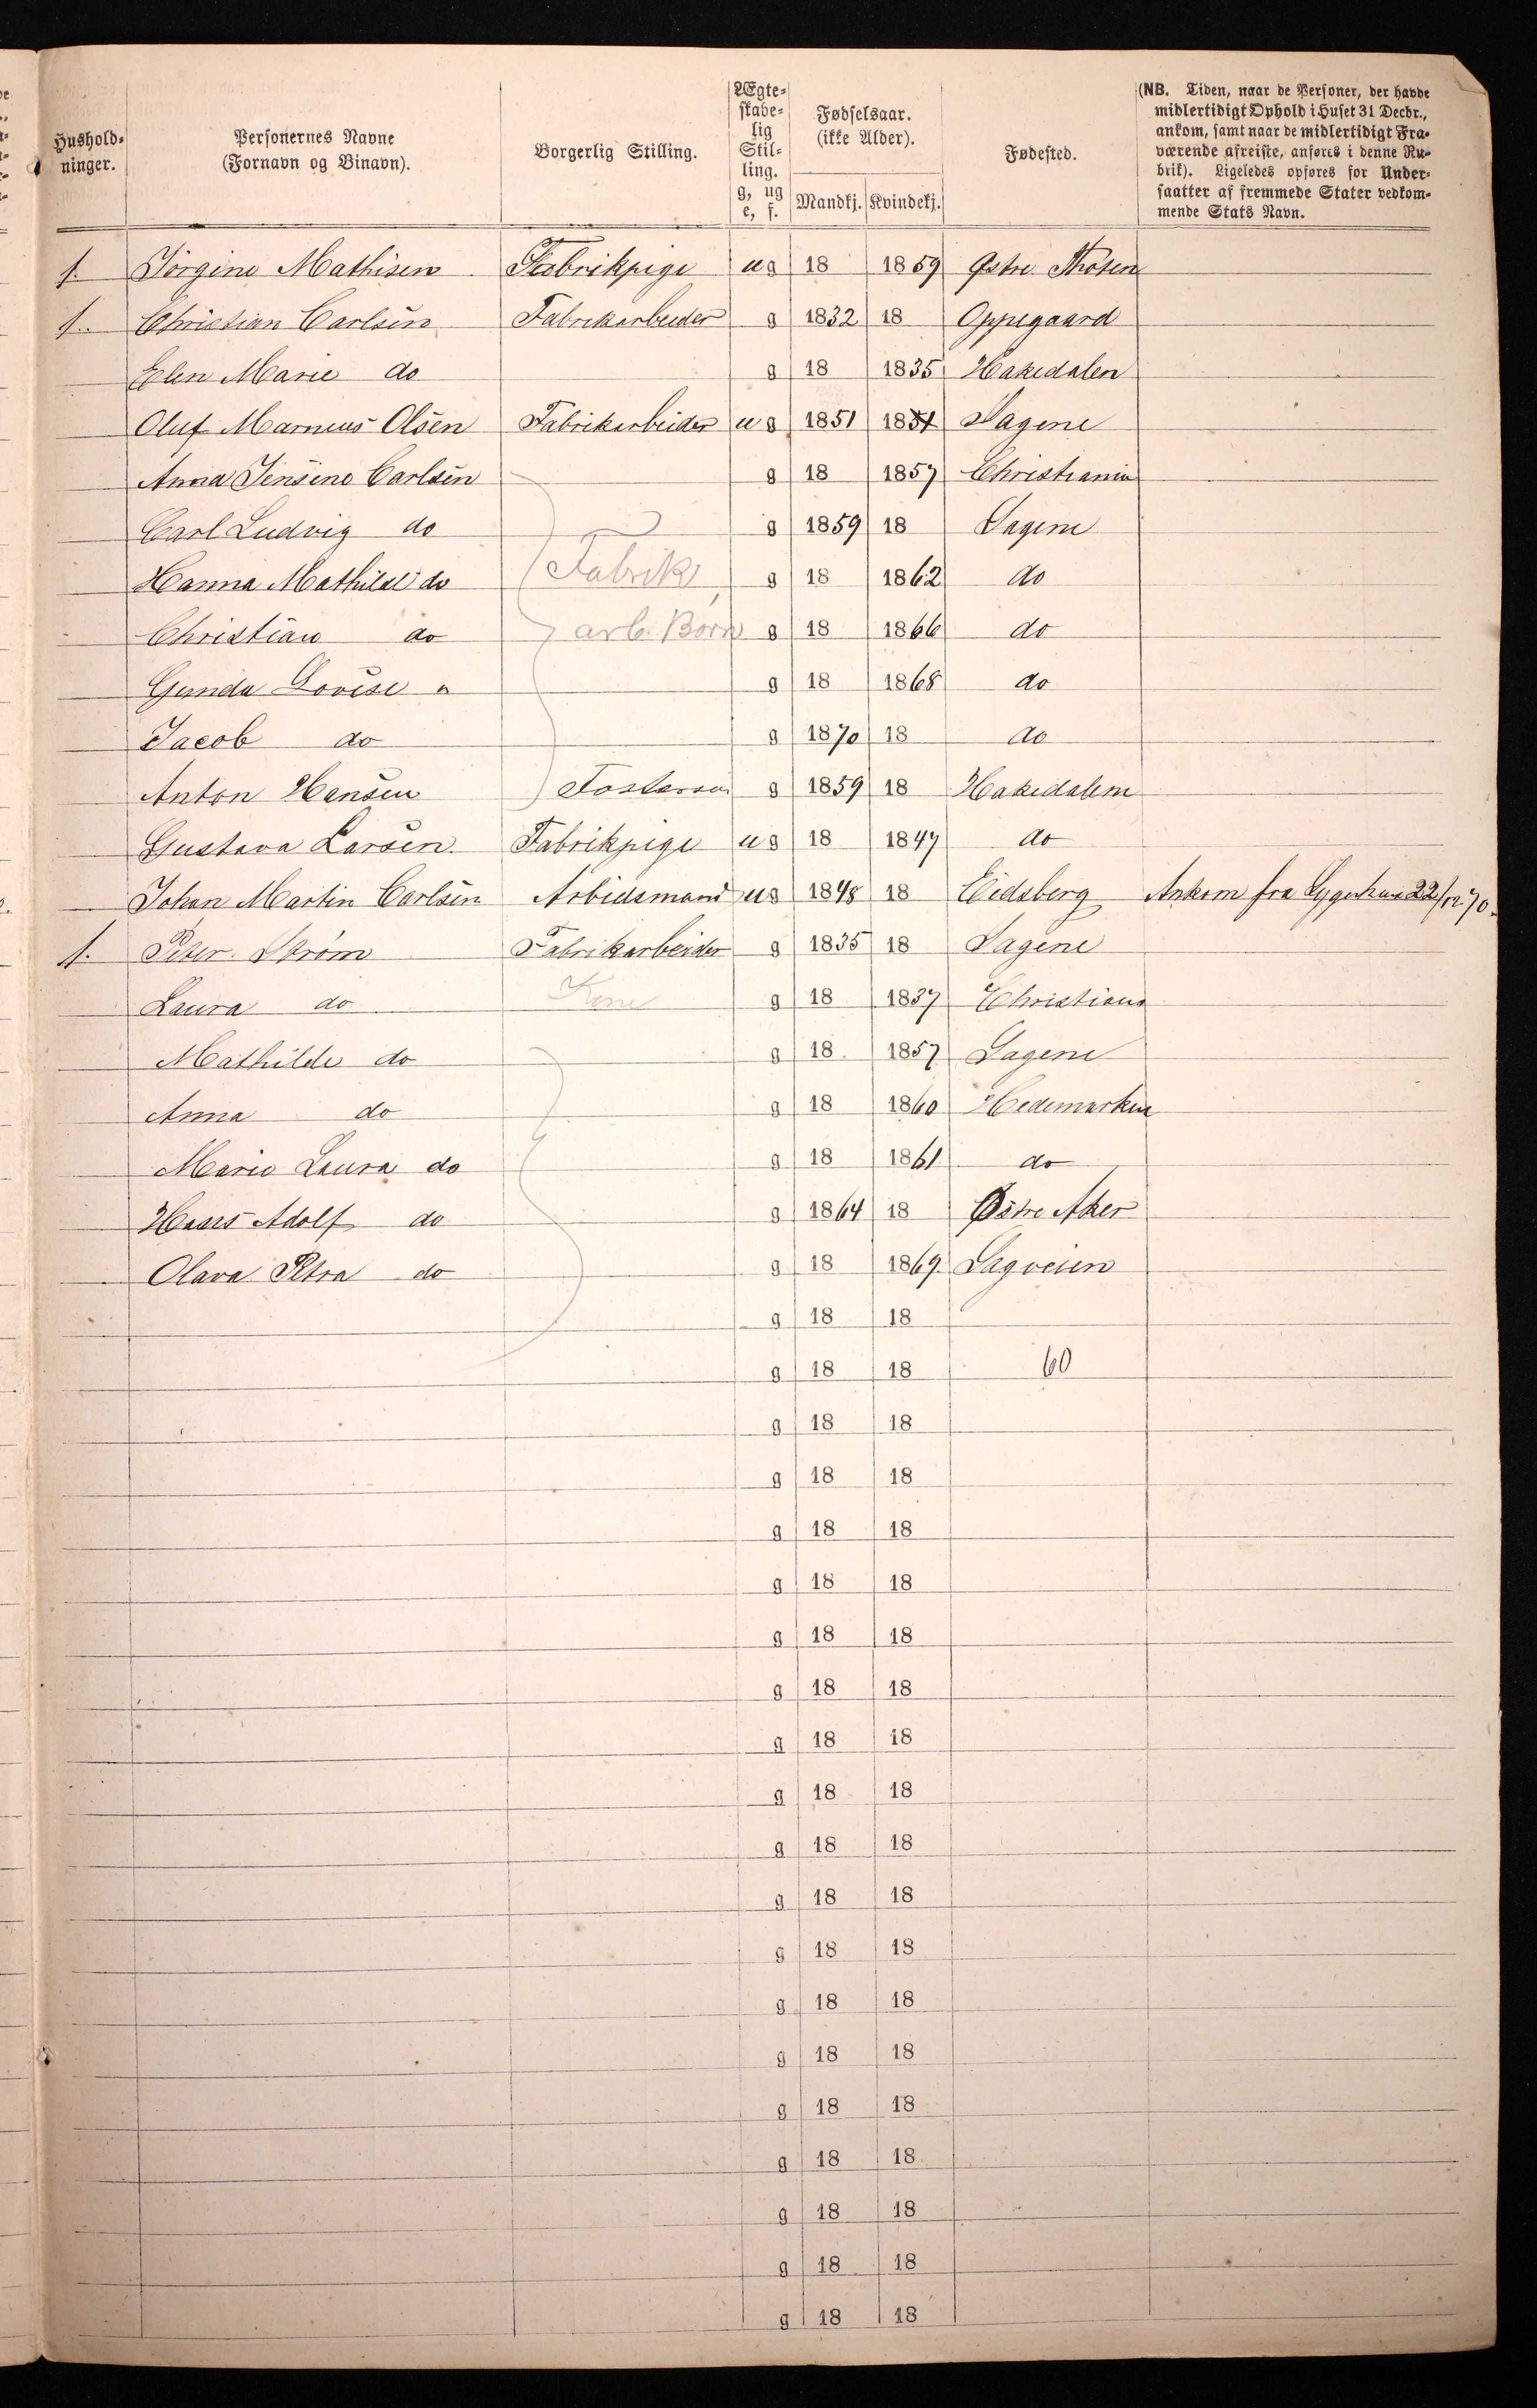 Hushold-
ninger.
Personernes Navne
(Fornavn og Binavn).
Borgerlig Stilling.
Ægte-
skabe-
lig
Stil-
ling.
g, ug
e, f.
Fødselsaar.
(ikke Alder).
Mandkj. Kvindekj.
Fødested.
(NB. Tiden, naar de Personer, der havde
midlertidigt Ophold i Huset 31 Decbr.,
ankom, samt naar de midlertidigt Fra-
værende afreiste, anføres i denne Ru-
brik). Ligeledes opføres for Under-
saatter af fremmede Stater vedkom-
mende Stats Navn.
1. Jørgine Mathisen Fabrikpige ug 18 1859 Østre Thoten
1. Christian Carlsen Fabrikarbeider g 1832 18 Oppegaard
Elen Marie do g 18 1835 Hakedalen
Oluf Marneus Olsen Fabrikarbeider ug 1851 1851 Sagene
Anna Jensine Carlsen g 18 1857 Christiania
Carl Ludvig do g 1859 18 Sagene
Hanna Mathilde do Fabrik g 18 1862 do
Christian do arb. Børn g 18 1866 do
Gunda Lovise " g 18 1868 do
Jacob do g 1870 18 do
Anton Hansen Fosterson g 1859 18 Hakedalen
Gustava Larsen. Fabrikpige ug 18 1847 do
Johan Martin Carlsen Arbeidsmand ug 1848 18 Eidsberg Ankom fra Sygehus 22/12 70.
1. Peter Strøm Fabrikarbeider g 1835 18 Sagene
Laura do Kone g 18 1837 Christiana
Mathilde do g 18 1857 Sagene
Anna do g 18 1860 Hedemarken
Marie Laura do g 18 1861 do
Hans Adolf do g 1864 18 Østre Aker
Olava Petra do g 18 1869. Sagveien
g 18 18
g 18 18 60
g 18 18
g 18 18
g 18 18
g 18 18
g 18 18
g 18 18
g 18 18
g 18 18
g 18 18
g 18 18
g 18 18
g 18 18
g 18 18
g 18 18
g 18 18
g 18 18
g 18 18
g 18 18